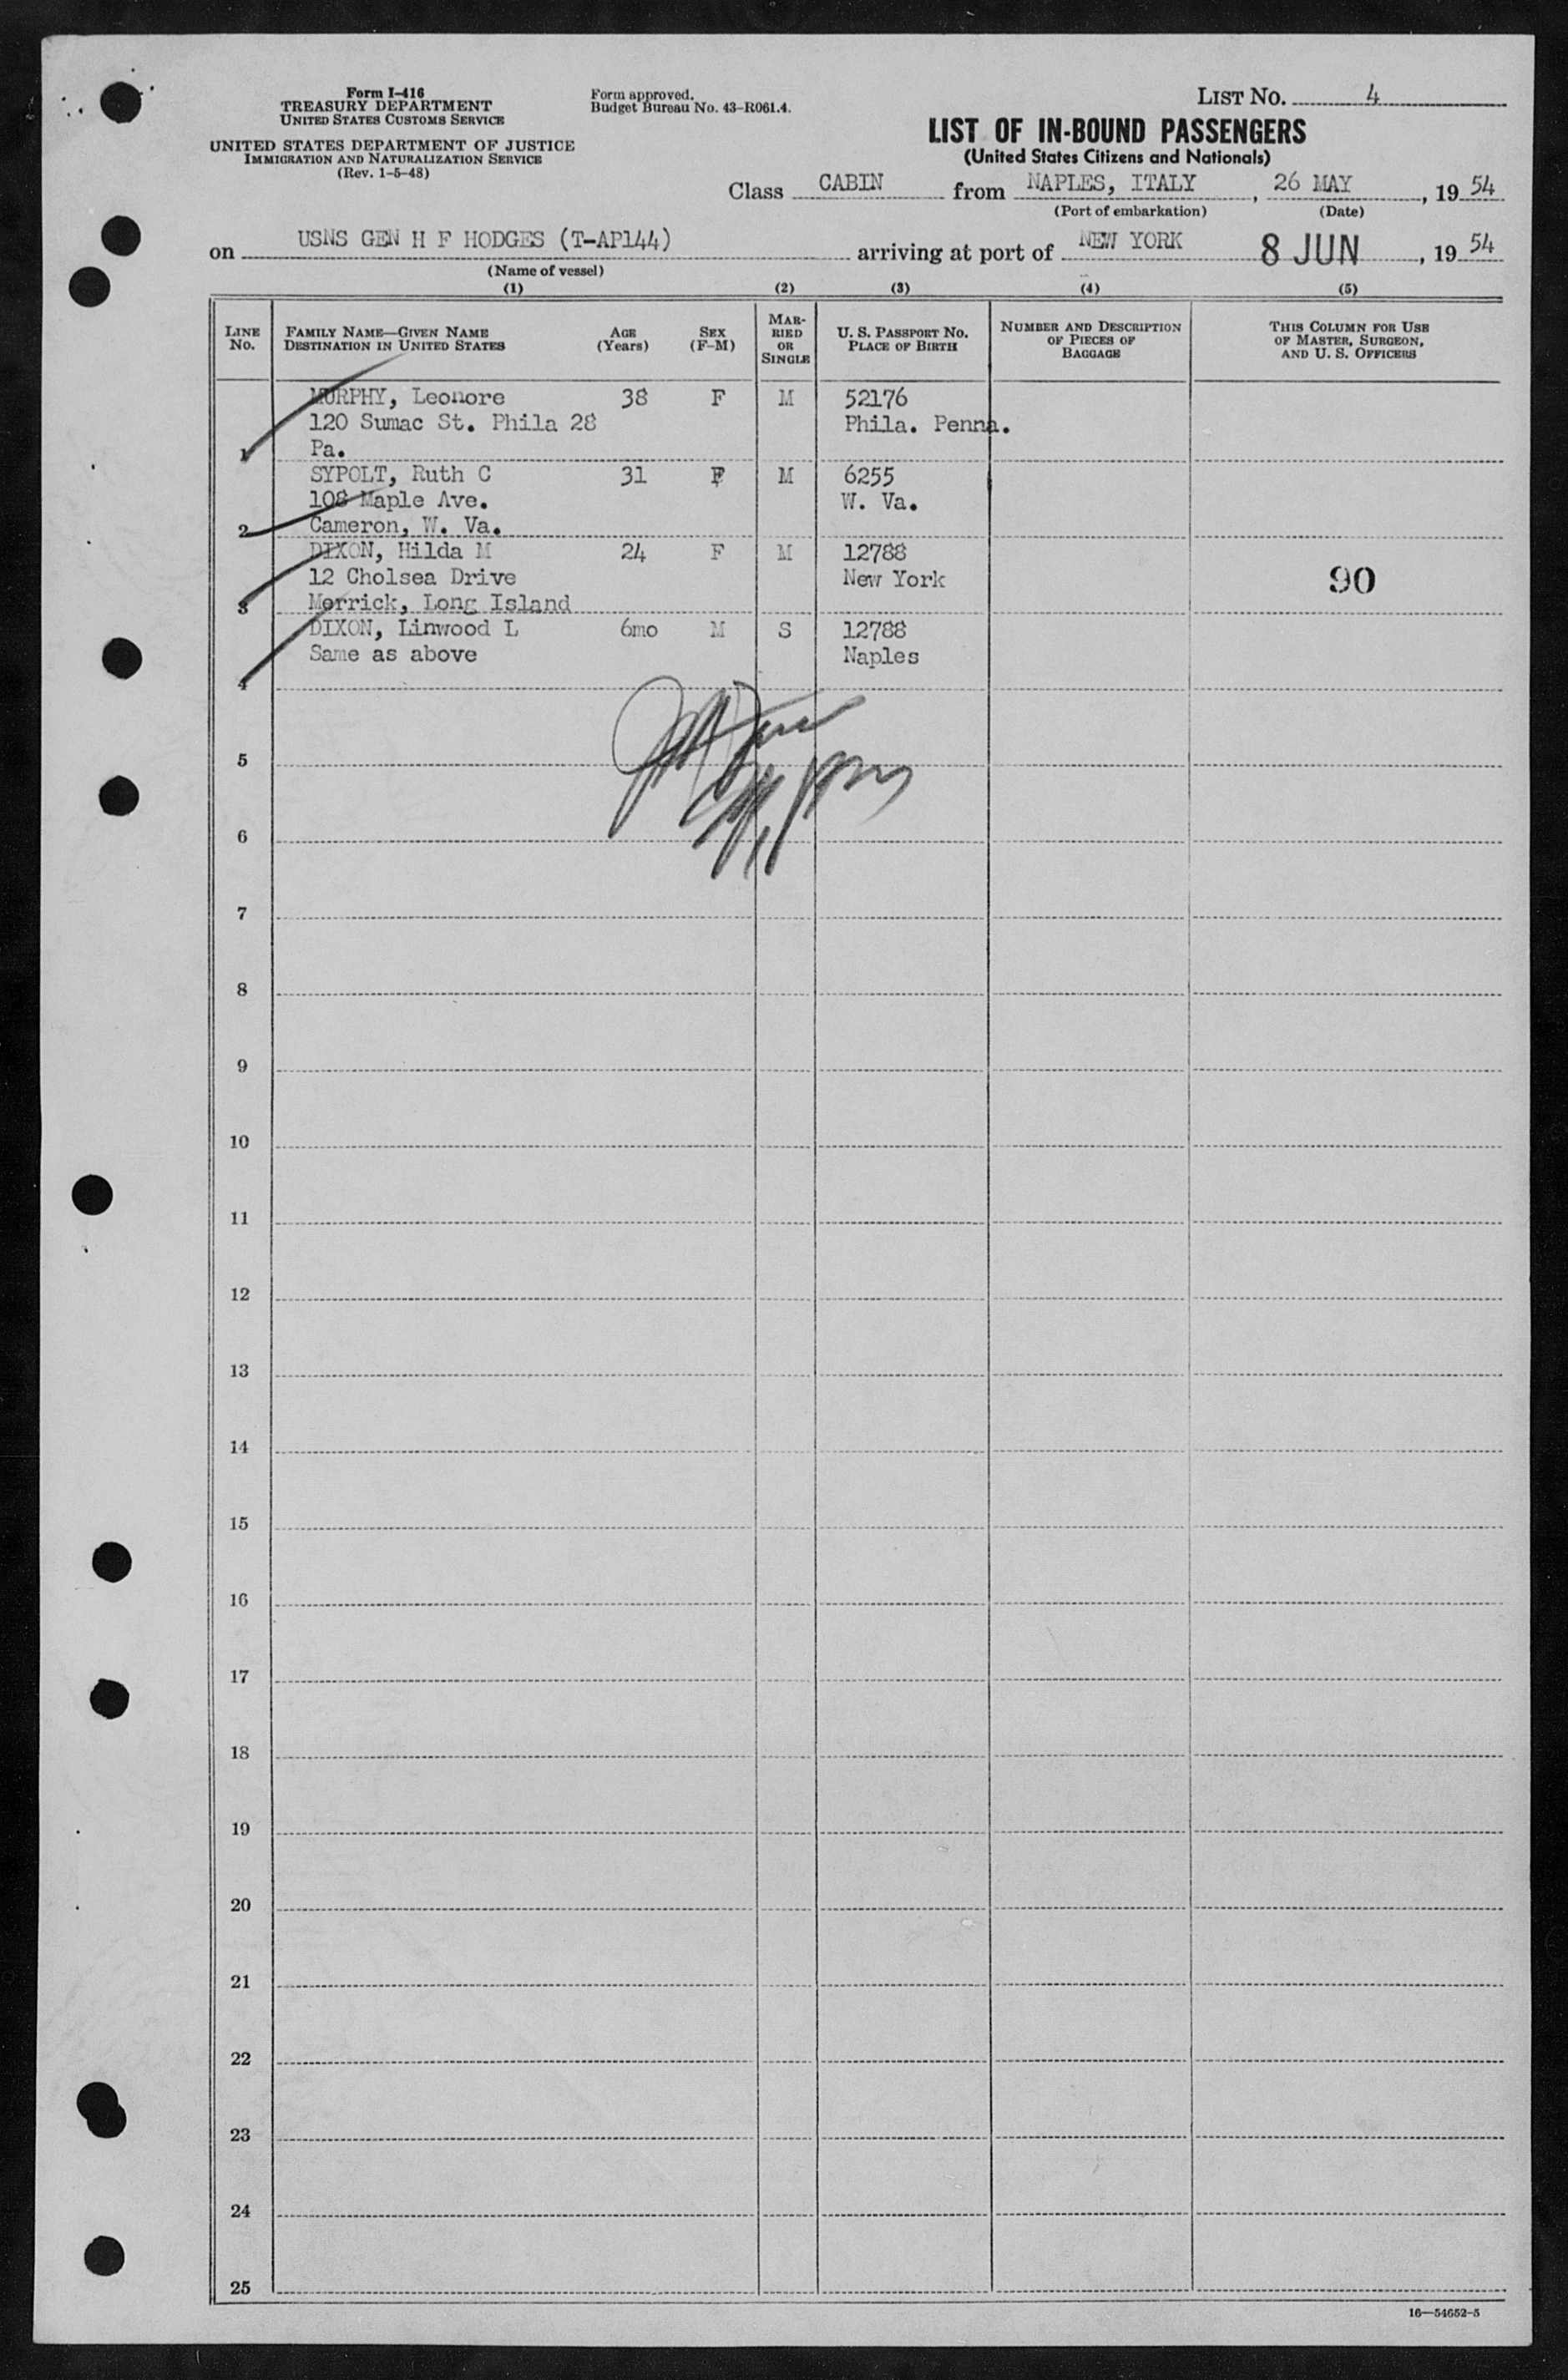 Form I-416
TREASURY DEPARTMENT
UNITED STATES CUSTOMS SERVICE
UNITED STATES DEPARTMENT OF JUSTICE
IMMIGRATION AND NATURALIZATION SERVICE
(Rev. 1-5-48)
Form approved.
Budget Bureau No. 43-R061.4.
LIST No. 4
LIST OF IN-BOUND PASSENGERS
(United States Citizens and Nationals)
Class CABIN from NAPLES, ITALY, 26 MAY, 19 54
(Port of embarkation) (Date)
on USNS GEN H F HODGES (T-AP144) arriving at port of NEW YORK 8 JUN, 19 54
(Name of vessel)
(1) (2) (3) (4) (5)
LINE No. FAMILY NAME—GIVEN NAME DESTINATION IN UNITED STATES AGE (Years) SEX (F-M) MARRIED OR SINGLE U. S. PASSPORT No. PLACE OF BIRTH NUMBER AND DESCRIPTION OF PIECES OF BAGGAGE THIS COLUMN FOR USE OF MASTER, SURGEON, AND U. S. OFFICERS
MURPHY, Leonore 38 F M 52176
120 Sumac St. Phila 28 Phila. Penna.
1 Pa.
SYPOLT, Ruth C 31 F M 6255
108 Maple Ave. W. Va.
2 Cameron, W. Va.
DIXON, Hilda M 24 F M 12788
12 Cholsea Drive New York 90
3 Merrick, Long Island
DIXON, Linwood L 6mo M S 12788
Same as above Naples
4
5
6
7
8
9
10
11
12
13
14
15
16
17
18
19
20
21
22
23
24
25
16—54652-5